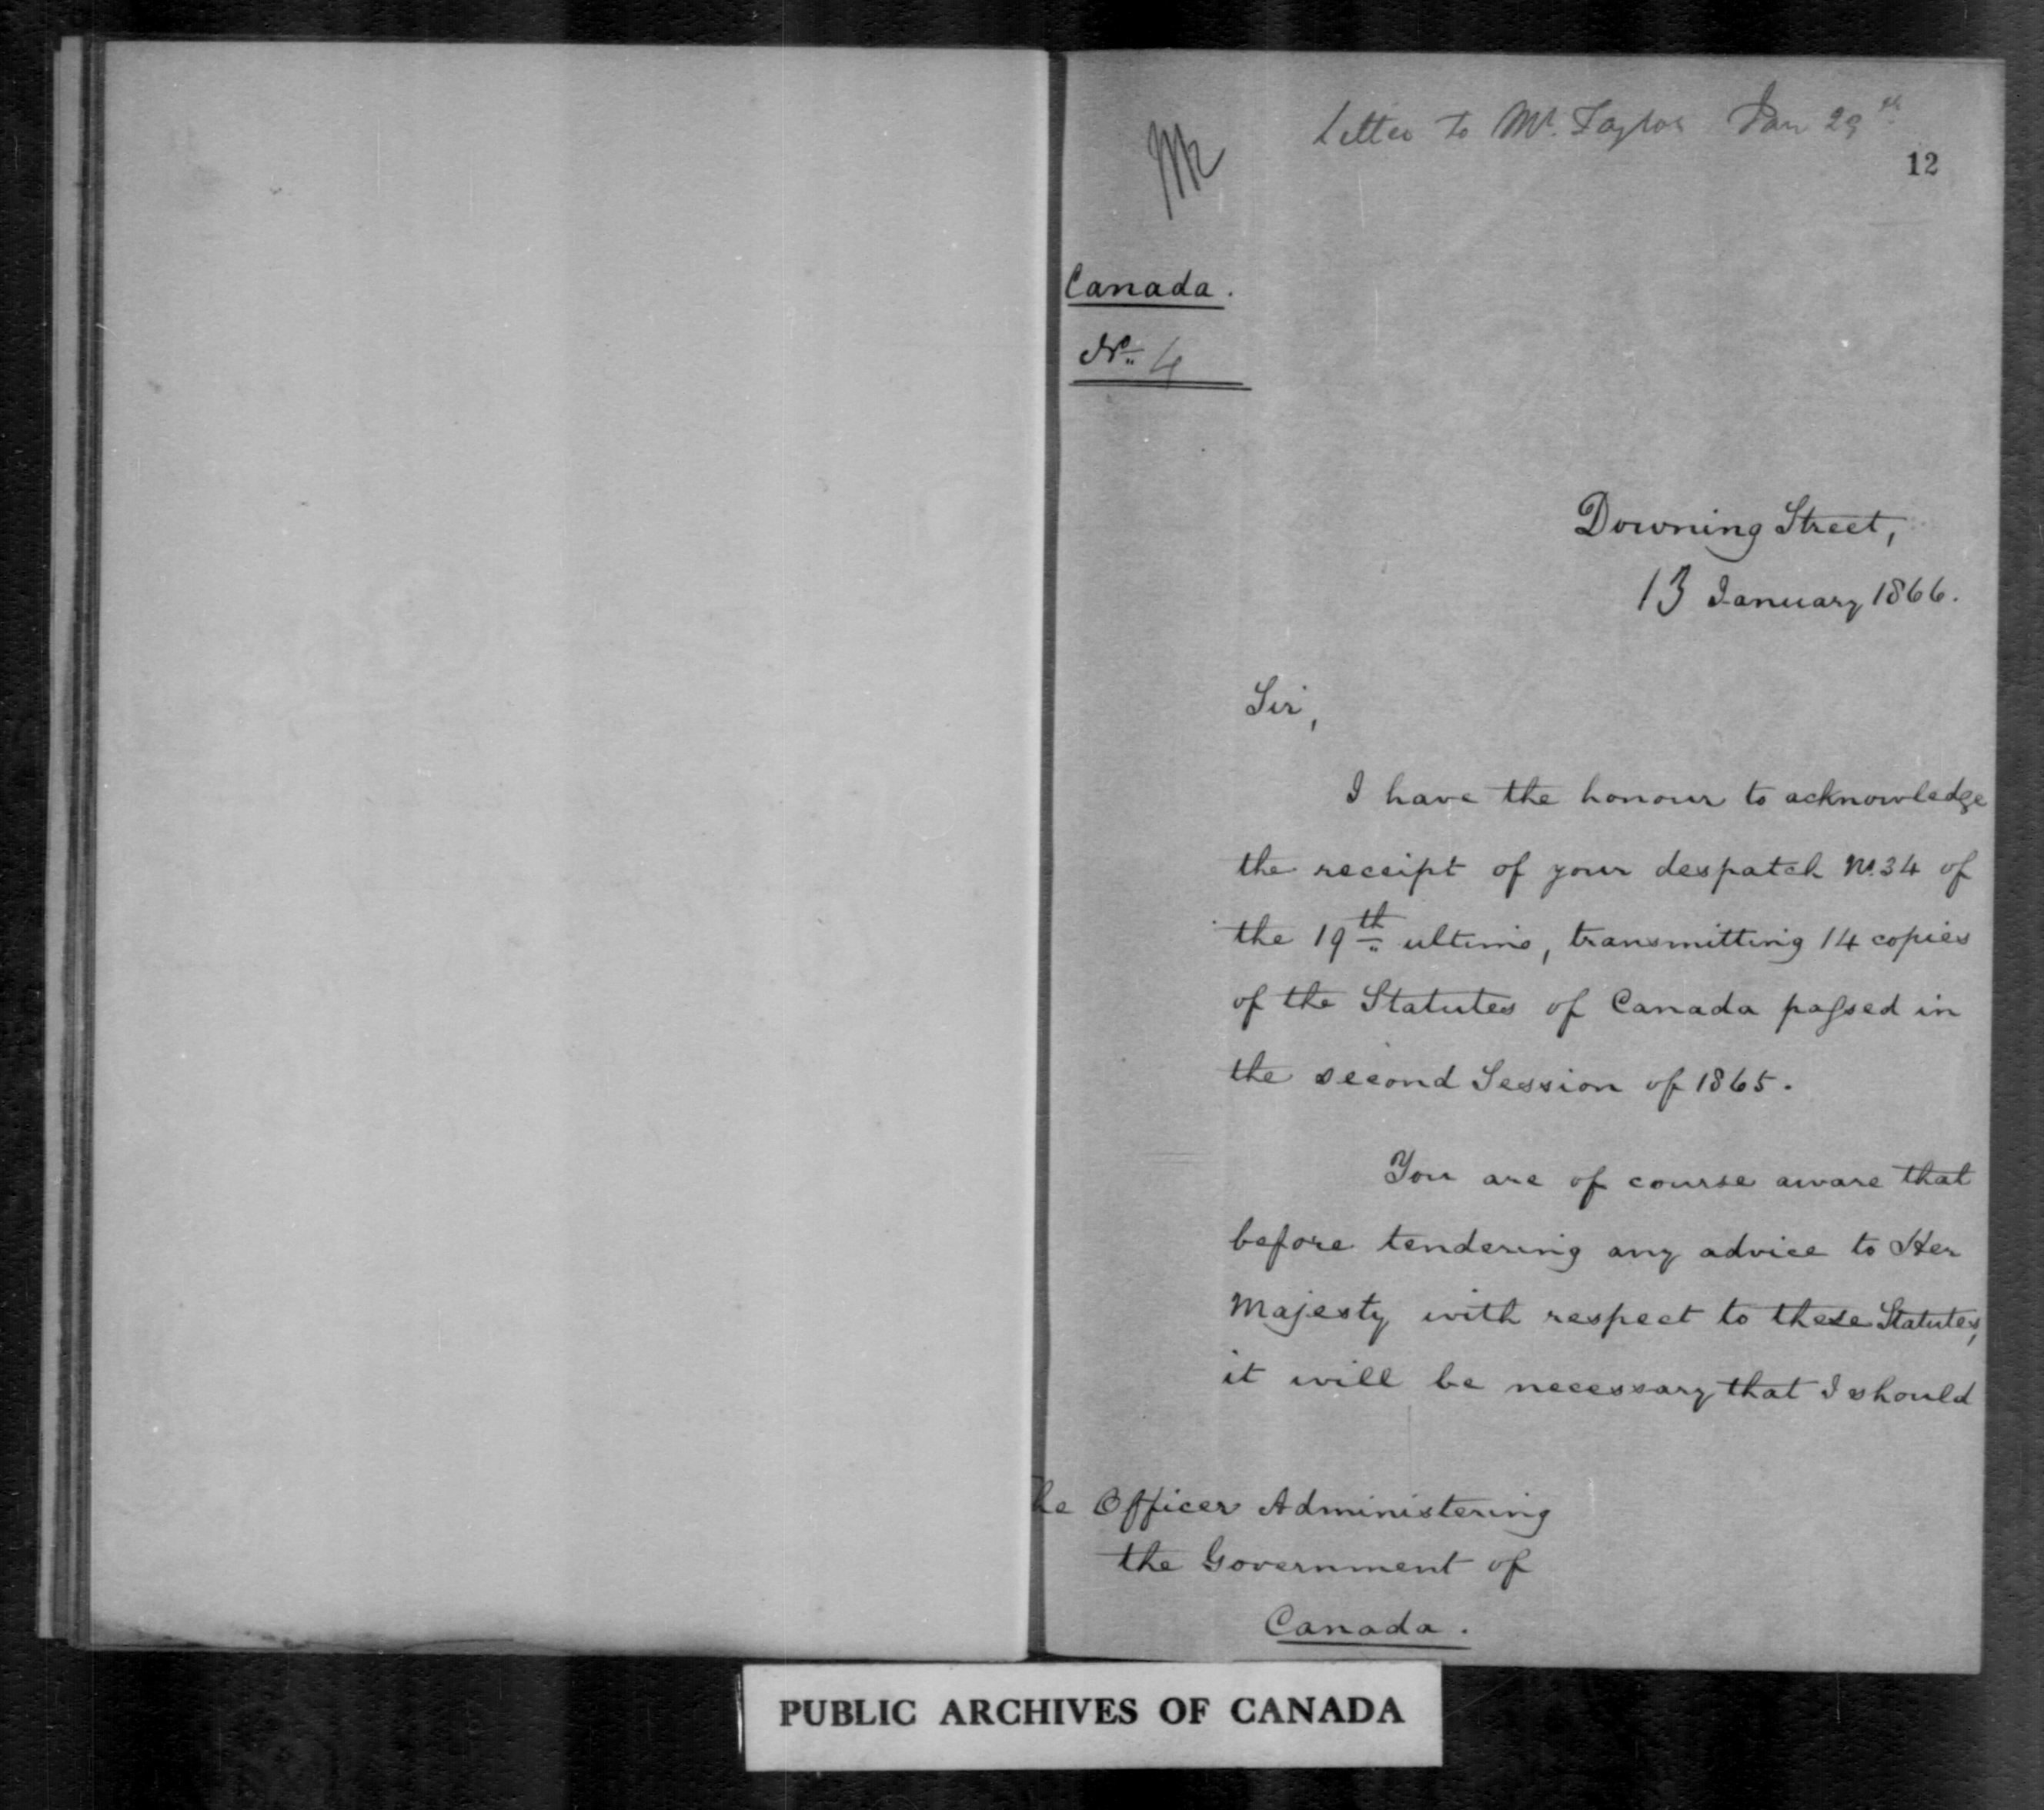 Letter to Mr. Taylor Jan 29th
12
Canada.
No. 4
Downing Street,
13 January 1866.
Sir,
I have the honour to acknowledge
the receipt of your despatch No. 34 of
the 19th ultimo, transmitting 14 copies
of the Statutes of Canada passed in
the second Session of 1865.
You are of course aware that
before tendering any advice to Her
Majesty with respect to these Statutes,
it will be necessary that I should
The Officer Administering
the Government of
Canada.
PUBLIC ARCHIVES OF CANADA